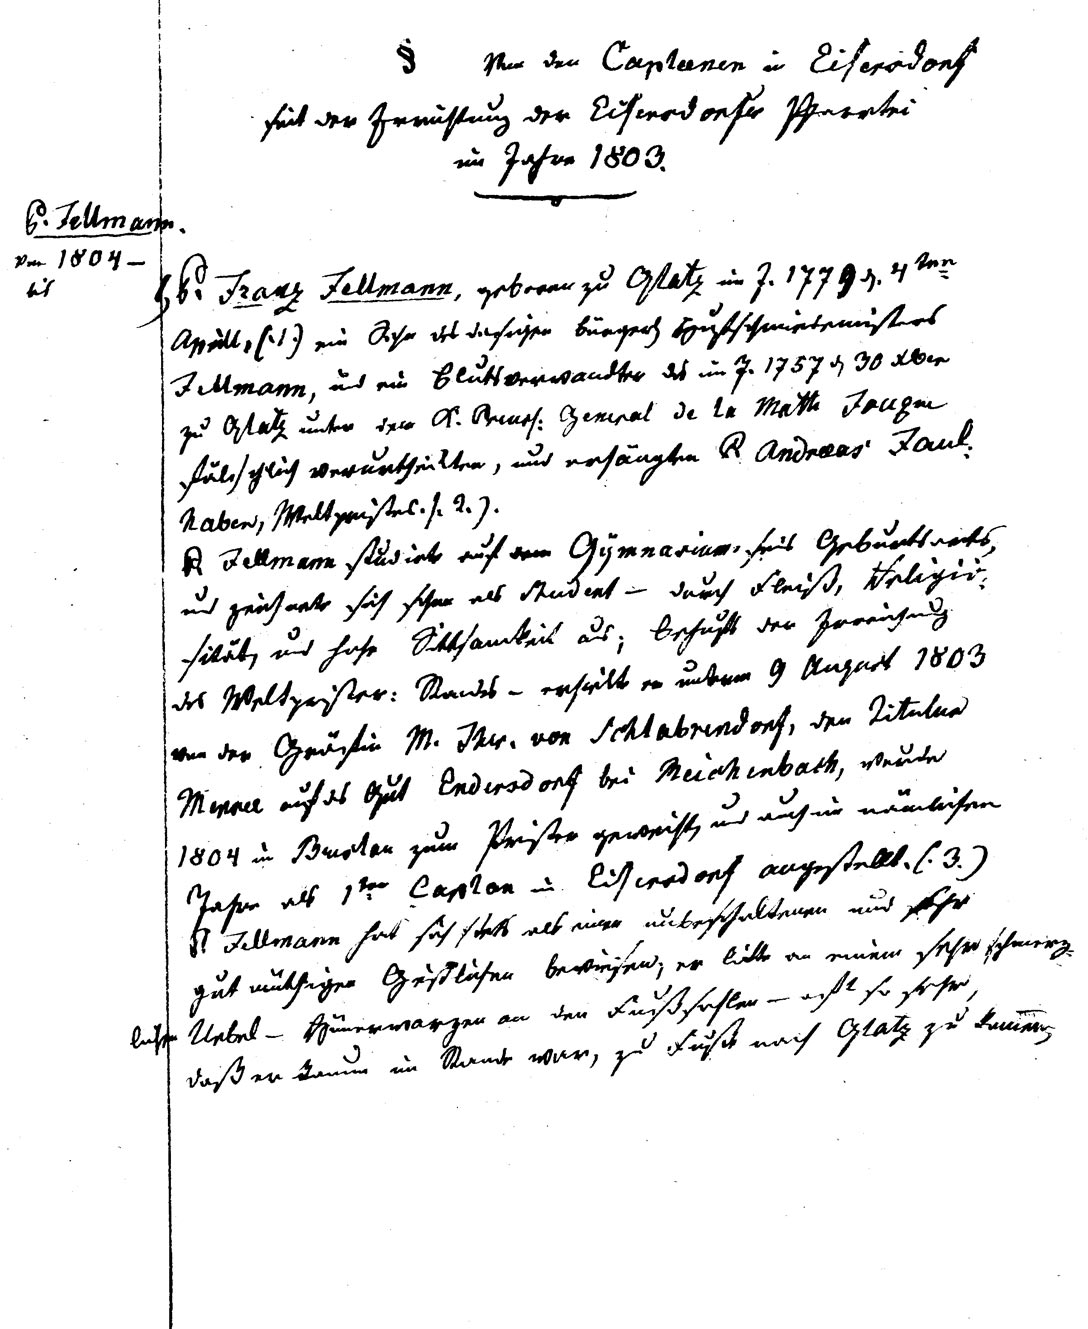 § Von den Caplänen in Eisersdorf
seit der Errichtung der Eisersdorfer Pfarrtei
im Jahre 1803.
P. Fellmann.
von 1804 —
bis
P. Franz Fellmann, geboren zu Glatz im J. 1779 d. 4ten
April, (.1.) ein Sohn des dasigen bürgerl. Hufschmiedemeisters
Fellmann, und ein Blutsverwandter des im J. 1757 d. 30 Xber
zu Glatz unter dem K. Preuss: General de la Motte Fouque
fälschlich verurtheilten, und erhängten P. Andreas Faul:
haber, Weltpriesters. (. 2.).
P. Fellmann studirte auf dem Gÿmnasium seis Geburtsorts,
und zeichnete sich schon als Student — durch Fleiß, Religio:
sität, und hohe Sittsamkeit aus; behufs der Erreichung
des Weltpriester: Standes — erhielt er unterm 9 August 1803
von der Gräfin M. Ther. von Schlabrendorf, den Titulus
Mensae auf das Gut Endersdorf bei Reichenbach, wurde
1804 in Breslau zum Priester geweiht, und auch im nämlichen
Jahre als 1ter Caplan in Eisersdorf angestellt. (. 3.)
P. Fellmann hat sich stets als einen unbescholtenen und sehr
gutmüthigen Geistlichen bewiesen; er litte an einem sehr schmerz-
lichen Uebel — Hünerwarzen an den Fußsohlen — oft so sehr,
daß er kaum im Stande war, zu Fuße nach Glatz zu kommen,